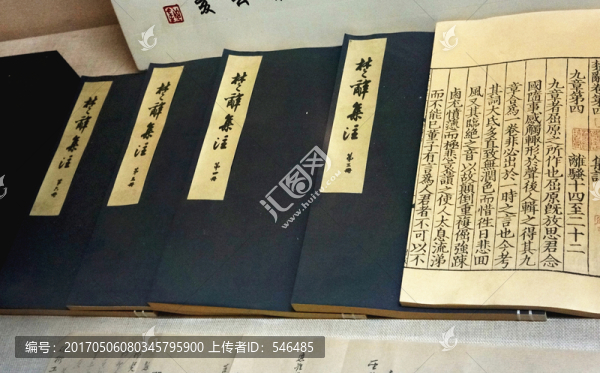 楚辭卷第四 集註
九章第四 離騷十四至二十二
九章者屈原之所作也屈原既放思君念
國隨事感觸輒形於聲後人輯之得其九
章合為一卷非必出於一時之言也今考
其詞大氐多直致無潤色而惜往日悲回
風又其臨絕之音以故顛倒重複倔強疎
鹵尤憤懣而極悲哀讀之使人太息流涕
而不能已董子有言為人君者不可以不
楚辭集注
楚辭集注 第一冊
楚辭集注
楚辭集注
汇图网
huitu.com
编号：20170506080345795900 上传者ID：546485